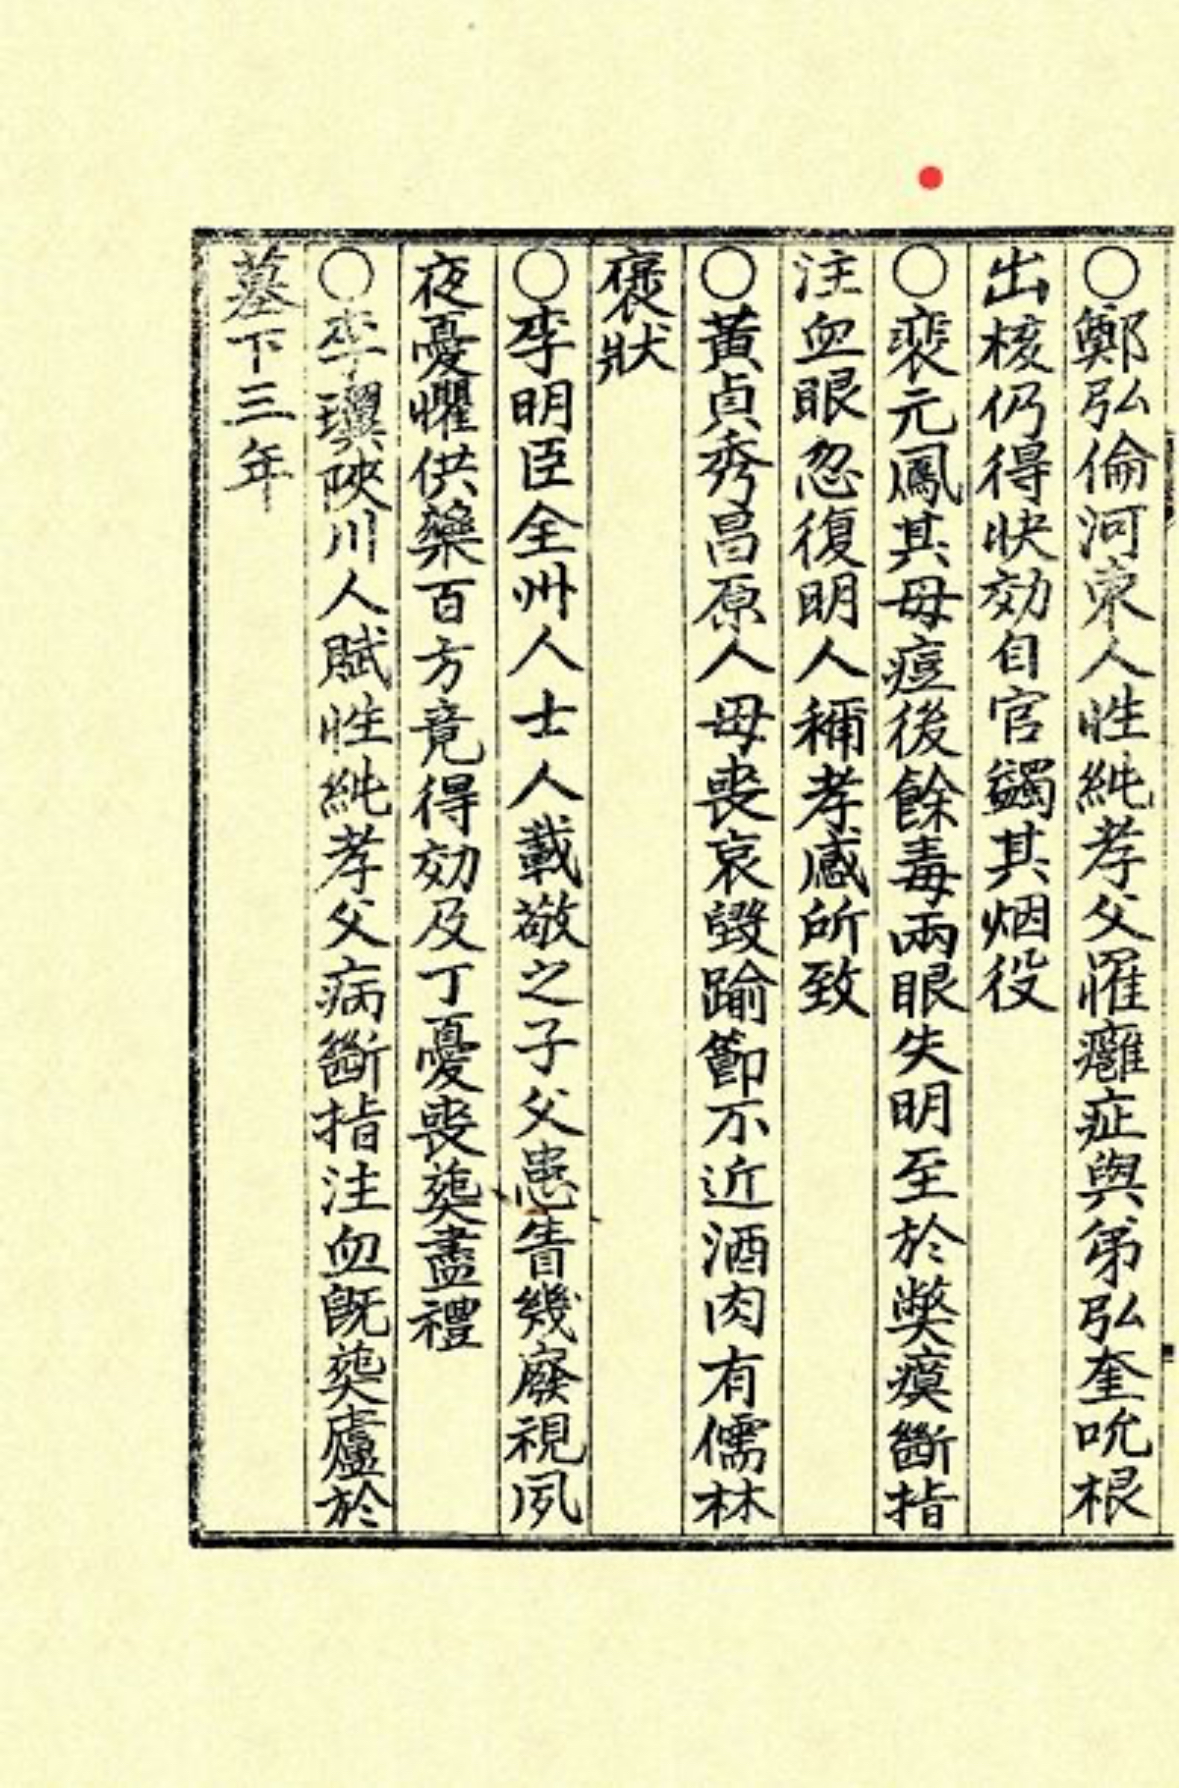 ○鄭弘倫河東人性純孝父罹癰症與弟弘奎吮根
出核仍得快効自官蠲其烟役
○裴元鳳其母痘後餘毒兩眼失明至於獘瘼斷指
注血眼忽復明人稱孝感所致
○黃貞秀昌原人母喪哀毀踰節不近酒肉有儒林
褒狀
○李明臣全州人士人載敬之子父患眚幾廢視夙
夜憂懼供藥百方竟得効及丁憂喪葬盡禮
○李瓆陜川人賦性純孝父病斷指注血旣葬廬於
墓下三年